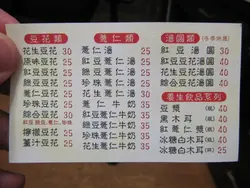 豆花類
花生豆花 30
原味豆花 25
紅豆豆花 30
綠豆豆花 30
薏仁豆花 30
珍珠豆花 30
綜合豆花 35
檸檬豆花 25
薑汁豆花 25
薏仁類
薏仁湯 25
紅豆薏仁湯 25
綠豆薏仁湯 25
花生薏仁湯 25
珍珠薏仁湯 25
薏仁牛奶 35
紅豆牛奶 35
花生牛奶 35
珍珠牛奶 35
湯圓類
紅豆湯圓 40
花生湯圓 40
薏仁湯圓 40
綜合湯圓 40
養生飲品系列
豆漿
黑木耳
紅薏仁漿 40
冰糖白木耳 40
冰糖白木耳 40